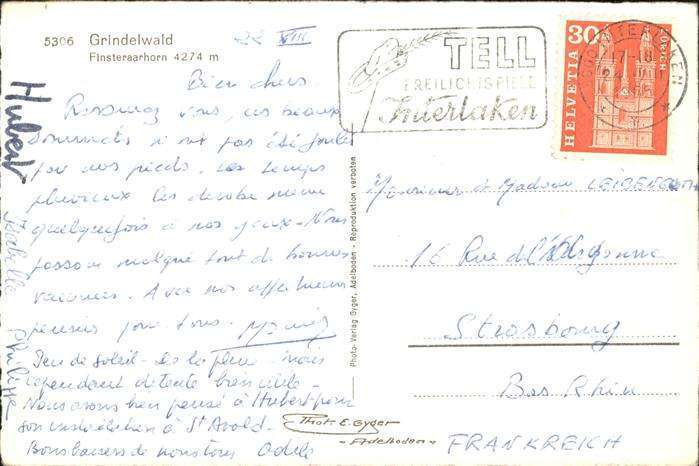 5306 Grindelwald
Finsteraarhorn 4274 m
22 VIII
TELL
FREILICHTSPIELE
Interlaken
HELVETIA
30
ZÜRICH
INTERLAKEN
Bien chers
Rassurez vous, ces beaux
sommets n'ont pas été foulés
par nos pieds. Les temps
pluvieux les dérobe même
quelquefois à nos yeux. Nous
passons malgré tout de bonnes
vacances. Avec nos affectueuses
pensées pour tous.
Peu de soleil - de la pluie - mais
cependant détente bien utile -
Nous avons bien pensé à Hubert pour
son installation à St Avold.
Bons baisers de nous tous Odile
Hubert
Isabelle
Philippe
Photo-Verlag Gyger, Adelboden - Reproduktion verboten
Monsieur et Madame
16 Rue de l'Argonne
Strasbourg
Bas Rhin
FRANKREICH
Phot. E. Gyger
- Adelboden -